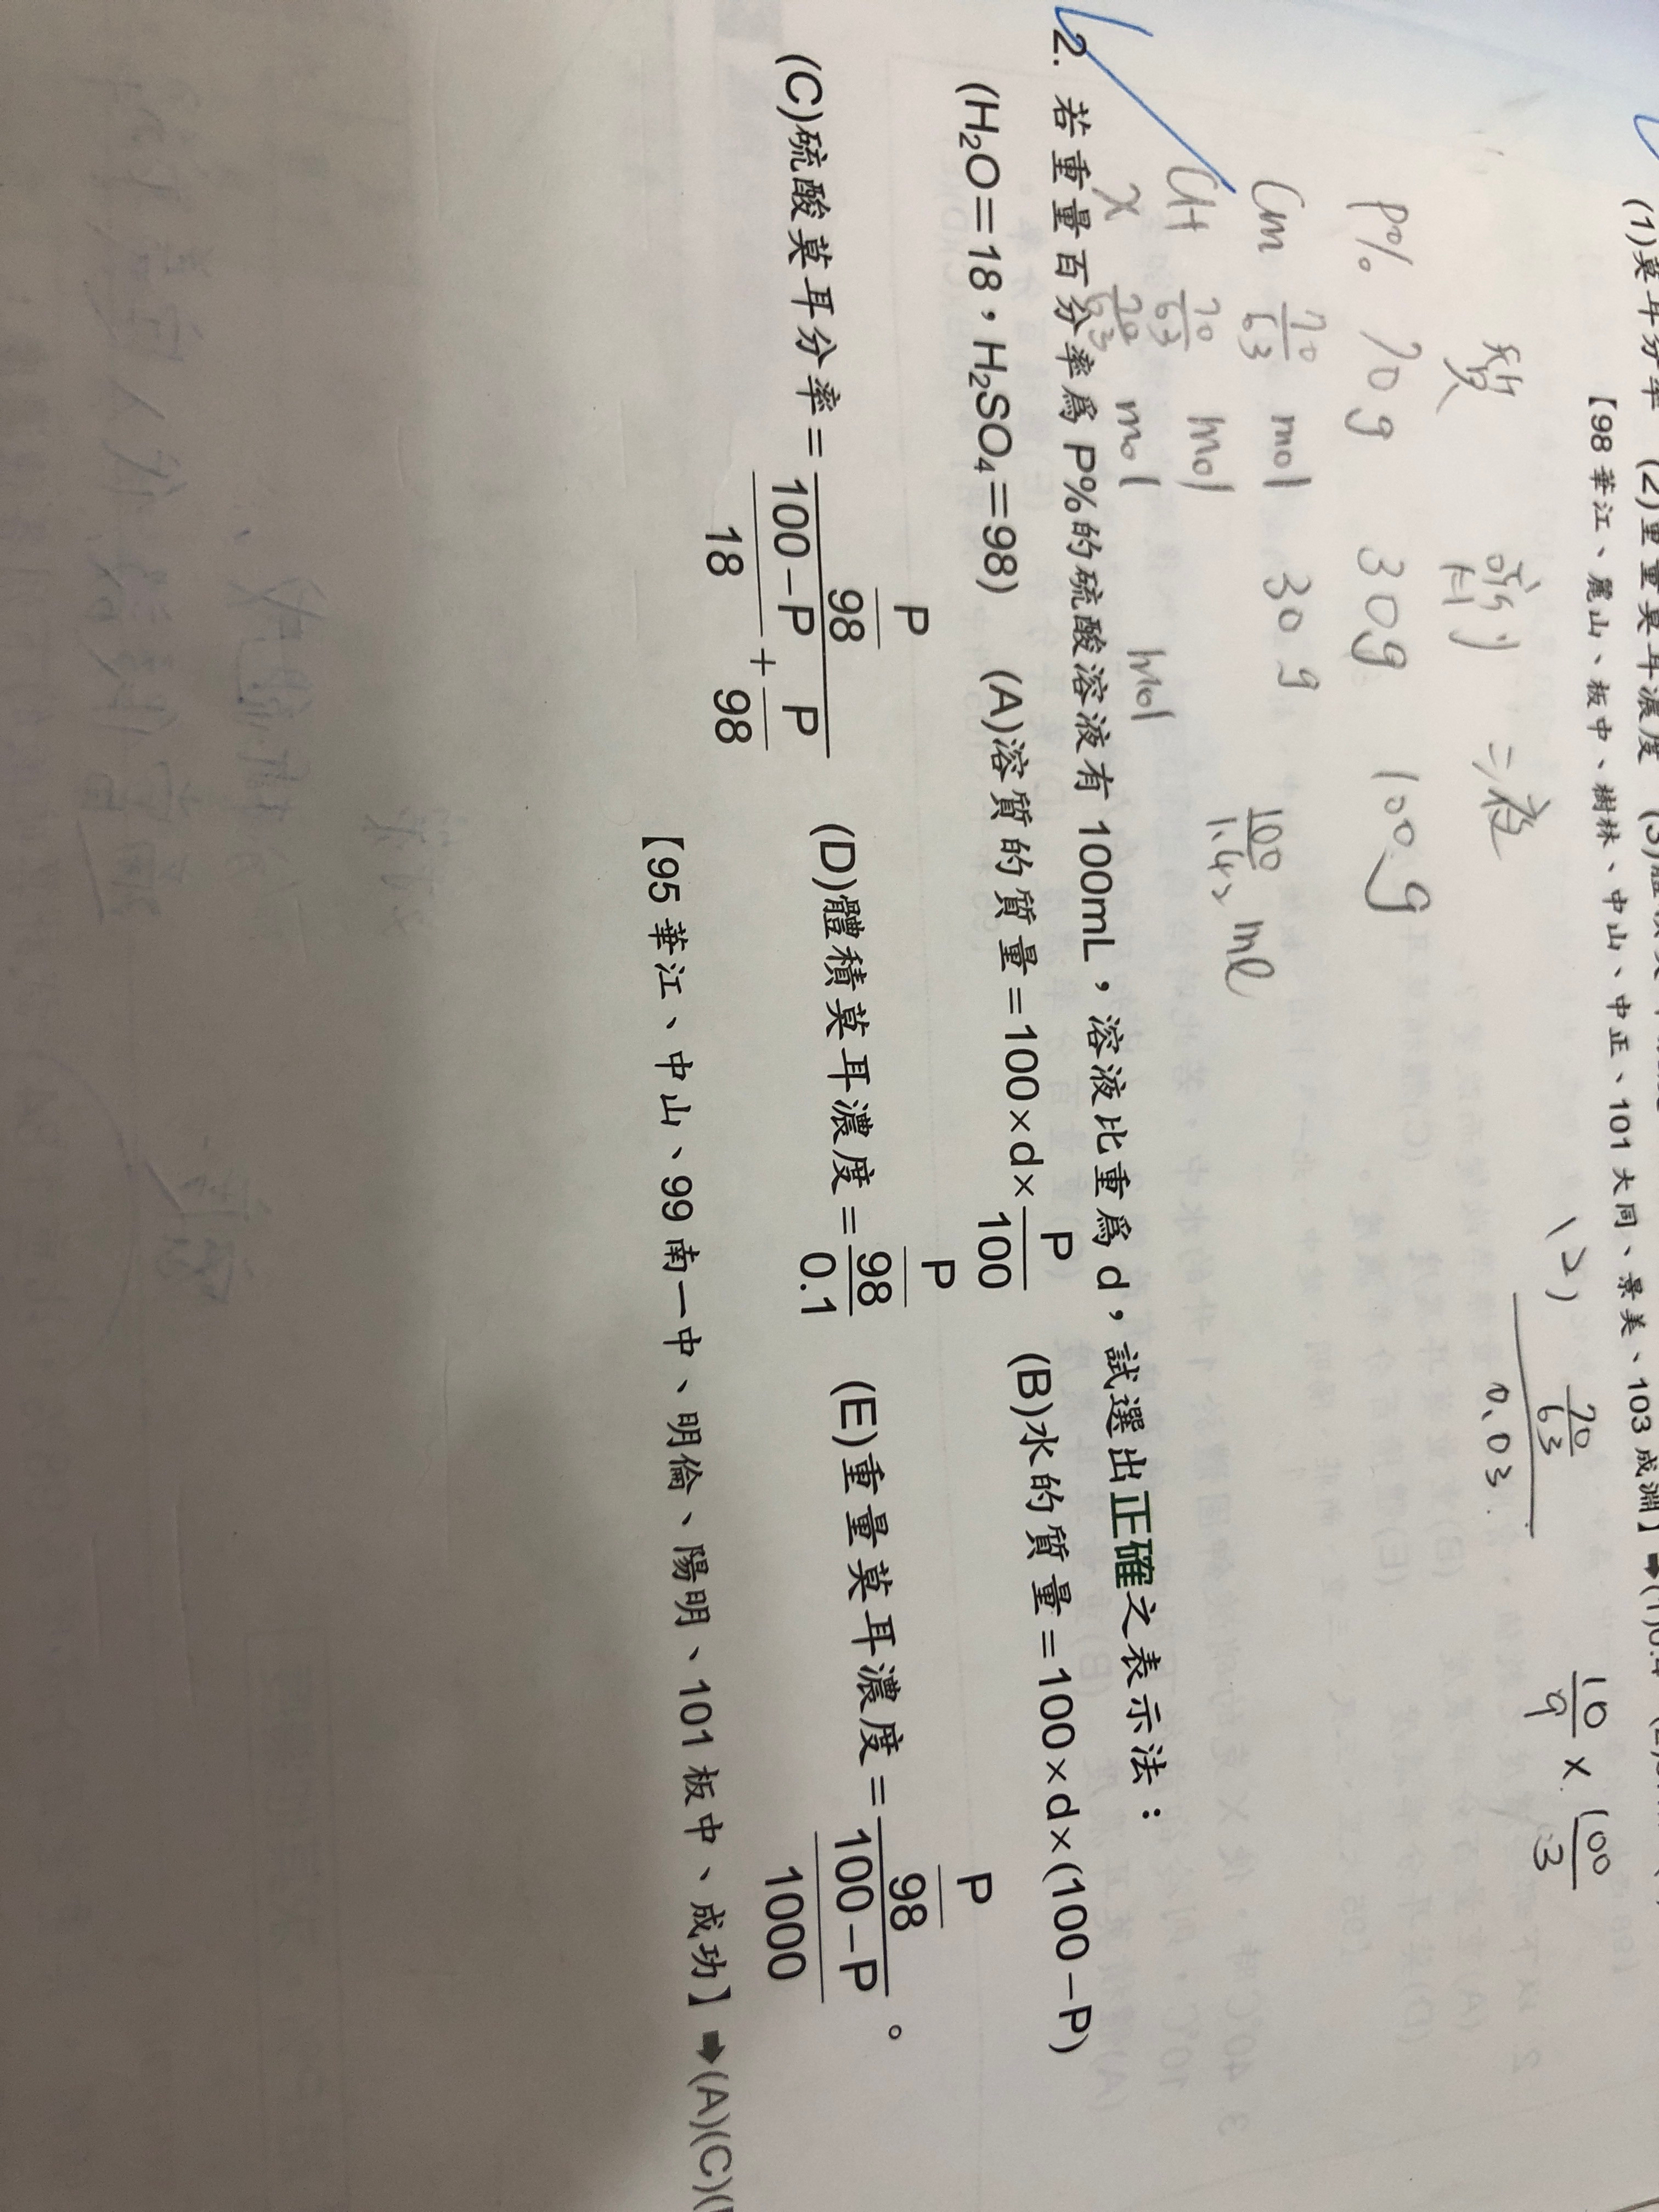 (1)莫耳分率 (2)重量莫耳濃度
【98 華江、麗山、板中、樹林、中山、中正、101 大同、景美、103 成淵】➡(1)0.4
質 劑 液
P% 70g 30g 100g
Cm 70/63 mol 30g
CM 70/63 mol 100/1.42 ml
X 70/63 mol mol
(2) 70/63 / 0.03
10/9 × 100/3
2. 若重量百分率為 P%的硫酸溶液有 100mL，溶液比重為 d，試選出正確之表示法：
(H₂O＝18，H₂SO₄＝98) (A)溶質的質量＝100×d×P/100 (B)水的質量＝100×d×(100－P)
(C)硫酸莫耳分率＝(P/98)/((100－P)/18＋P/98) (D)體積莫耳濃度＝(P/98)/0.1 (E)重量莫耳濃度＝(P/98)/((100－P)/1000)。
【95 華江、中山、99 南一中、明倫、陽明、101 板中、成功】➡(A)(C)(